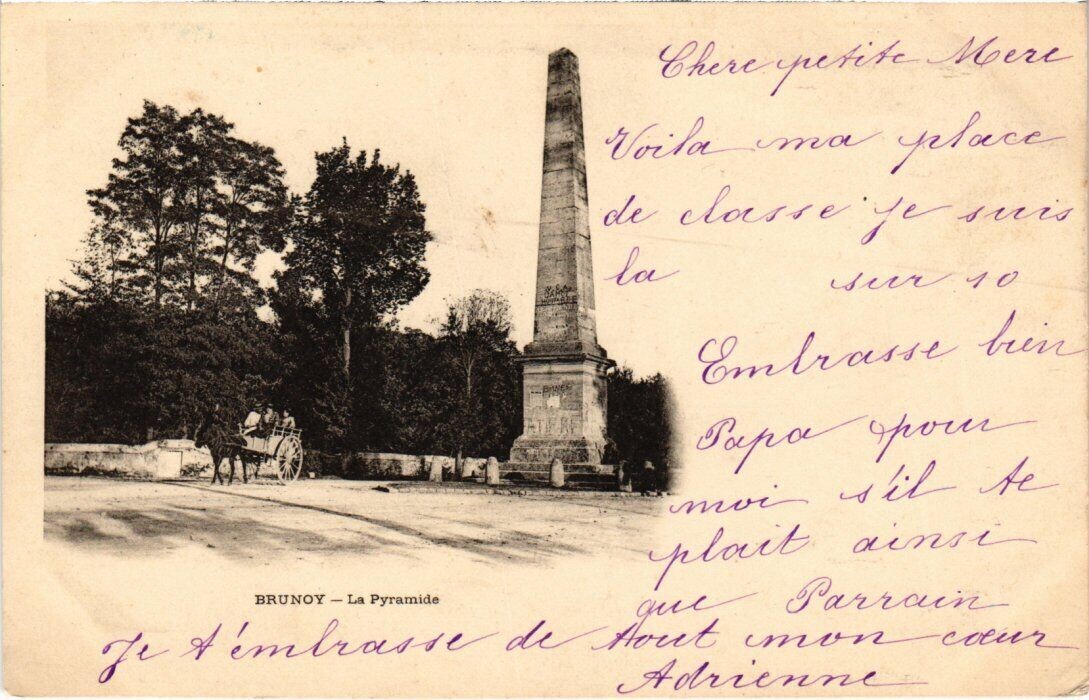 Chere petite Mere
Voila ma place
de classe je suis
la sur 10
Embrasse bien
Papa pour
moi s'il te
plait ainsi
que Parrain
Je t'embrasse de tout mon cœur
Adrienne
BRUNOY — La Pyramide